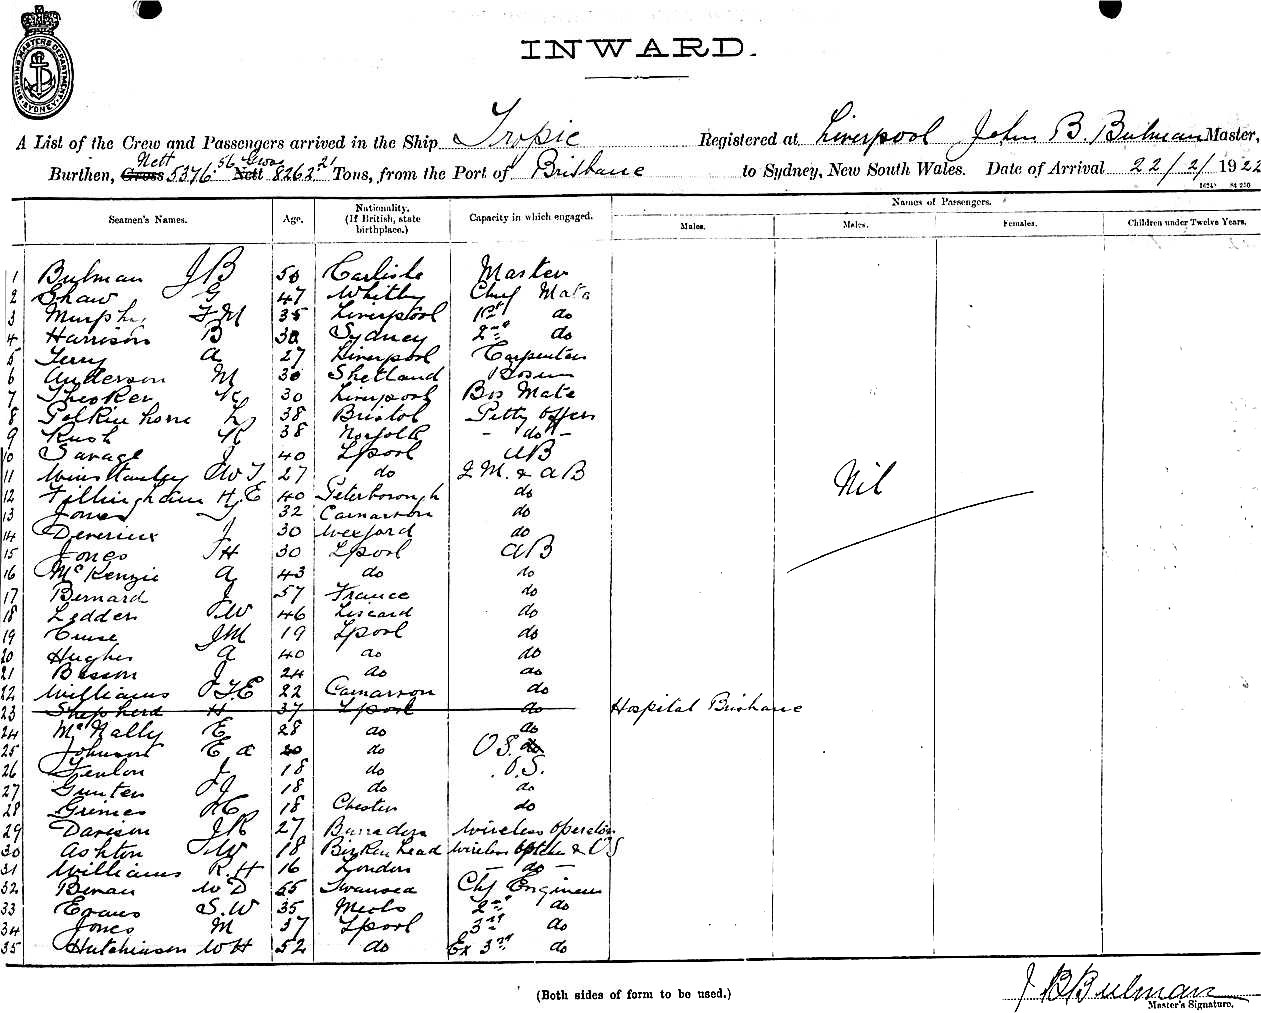 INWARD.
SHIPPING MASTERS DEPARTMENT SYDNEY
A List of the Crew and Passengers arrived in the Ship Tropic Registered at Liverpool John B. Bulman Master,
Burthen, Gross Nett 5376.56 Nett Gross 8262.21 Tons, from the Port of Brisbane to Sydney, New South Wales. Date of Arrival 22/2/1922
Seamen's Names. Age. Nationality. (If British, state birthplace.) Capacity in which engaged. Names of Passengers.
Males. Males. Females. Children under Twelve Years.
1 Bulman J B 50 Carlisle Master
2 Shaw G 47 Whitby Chief Mate
3 Murphy F M 35 Liverpool 1st do
4 Harrison B 30 Sydney 2nd do
5 Terry A 27 Liverpool Carpenter
6 Anderson M 30 Shetland Bosun
7 30 Liverpool Bos Mate
8 38 Bristol Petty Officer
9 Rush R 38 Norfolk - do -
10 Savage J 40 Lpool AB
11 Winstanley W T 27 do AB
12 Fillingham H E 40 Peterborough do
13 Jones 32 Carnarvon do
14 Devereux J 30 Wexford do
15 Jones H 30 Lpool AB
16 McKenzie A 43 do do
17 Bernard J 57 France do
18 Ledder W 46 Liscard do
19 JM 19 Lpool do
20 Hughes A 40 do do
21 J 24 do do
22 Williams T.E 22 Carnarvon do
23 Shepherd H 37 Lpool do Hospital Brisbane
24 McNally E 28 do do
25 Johnson E A 20 do OS. do
26 Fenlon J 18 do O.S.
27 J 18 do do
28 Grimes 18 Chester do
29 Davison J R 27 Wireless Operator
30 Ashton W 18 Birkenhead Wireless & OS
31 Williams R.H 16 London - do -
32 W D 55 Swansea Chf Engineer
33 Evans S.W 35 Meols 2nd do
34 Jones M 37 Lpool 3rd do
35 Hutchinson W H 52 do Ex 3rd do
Nil
J B Bulman
Master's Signature.
(Both sides of form to be used.)